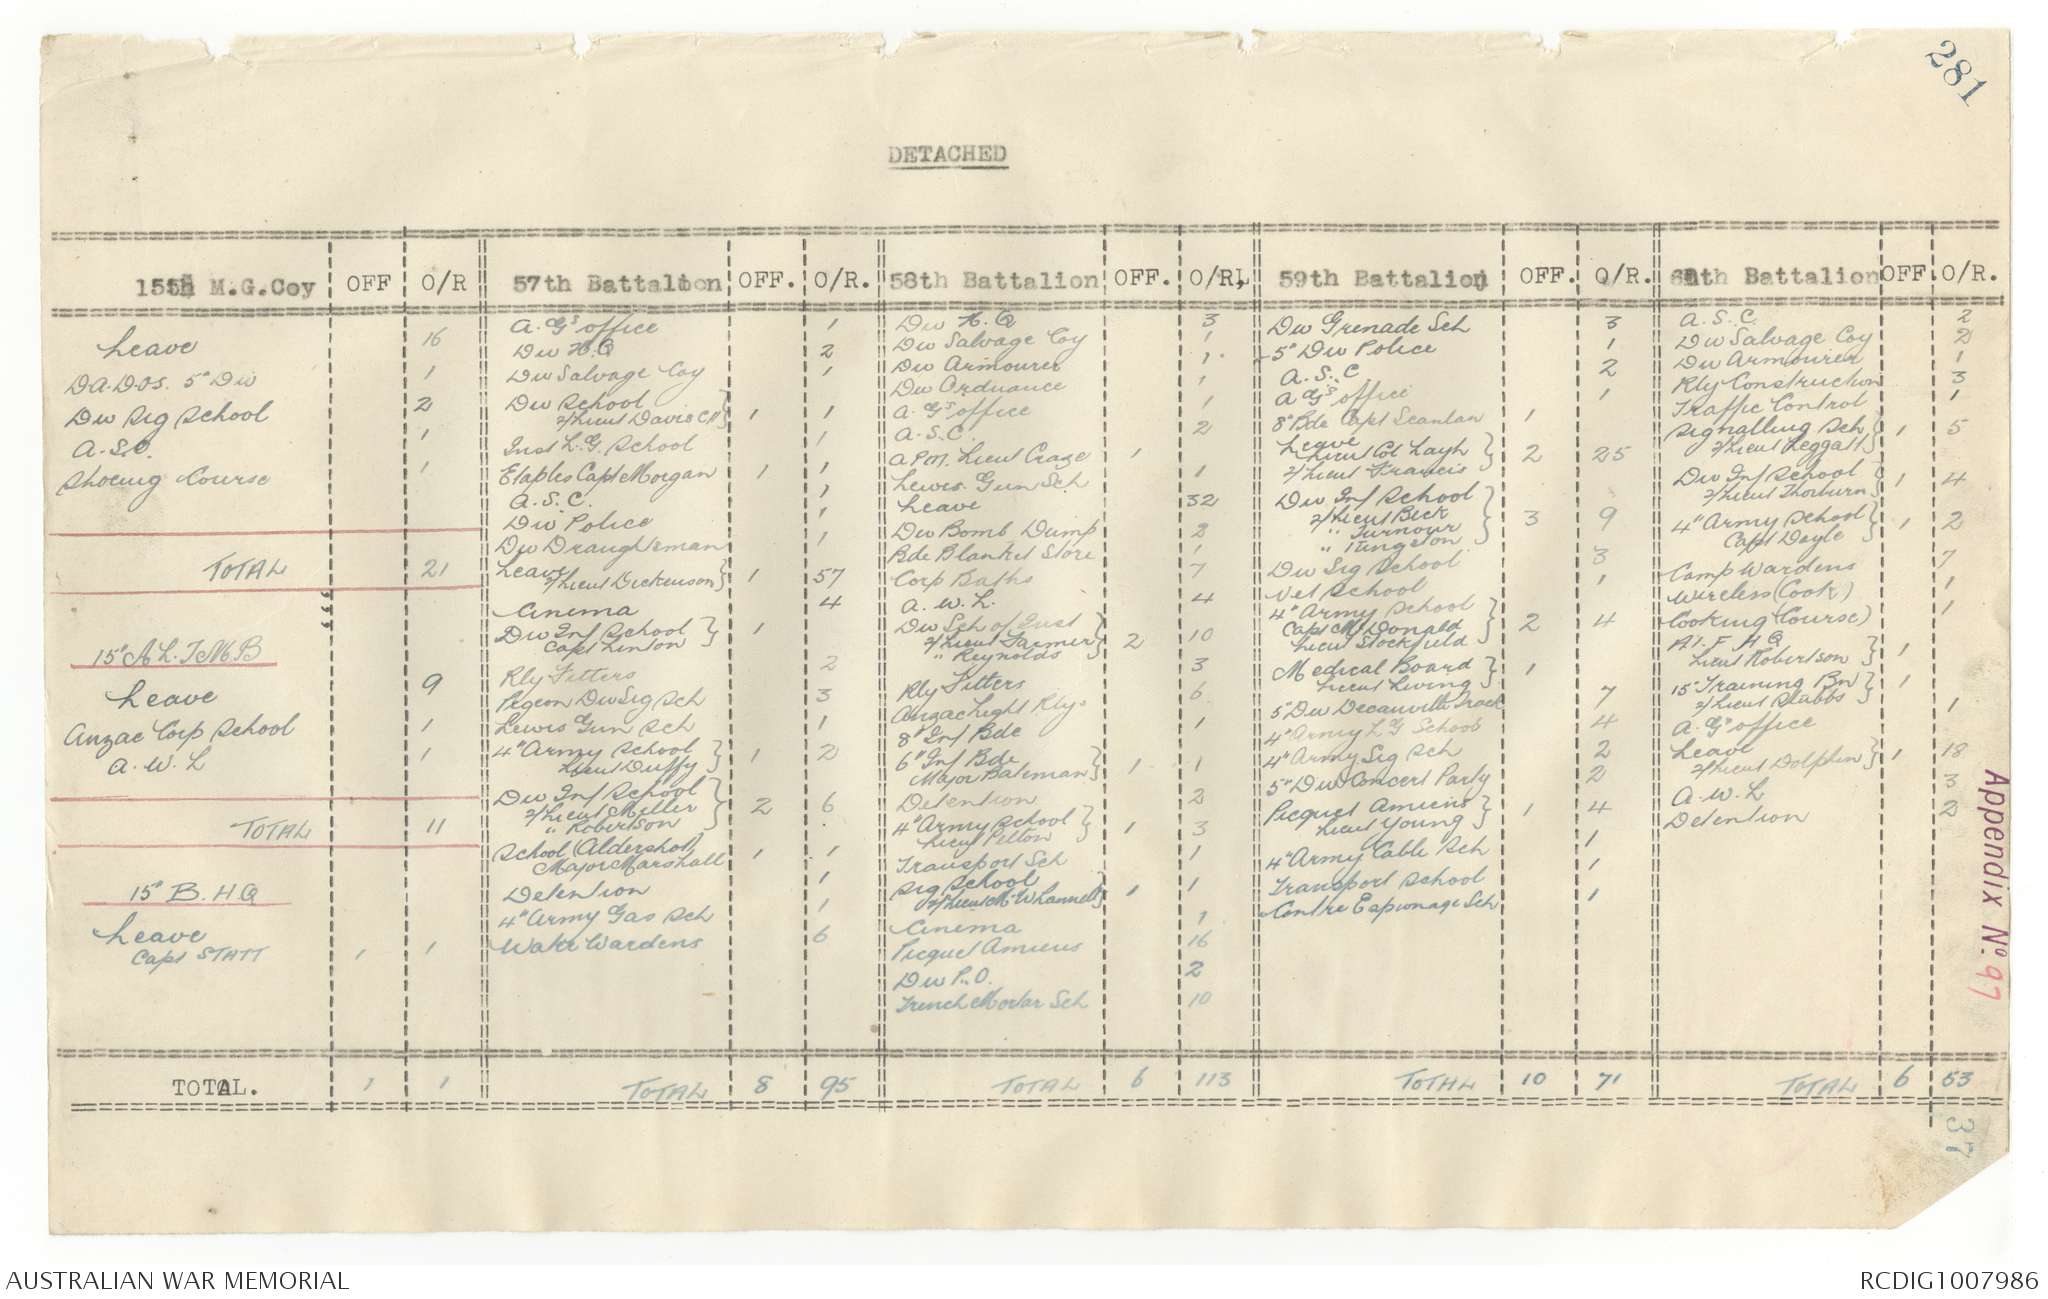 281
DETACHED
15th M.G.Coy OFF O/R
Leave 16
D.A.D.O.S. 5" Div 1
Div Sig School 2
A.S.C. 1
Shoeing Course 1
TOTAL 21
15" A L.T.M.B
Leave 9
Anzac Corp School 1
A.W.L 1
TOTAL 11
15" B.H.Q
Leave
Capt STATT 1 1
TOTAL. 1 1
57th Battalion OFF. O/R.
A.G's office 1
Div H.Q 2
Div Salvage Coy 1
Div School
2/Lieut Davis C.V } 1 1
Inst L.G. School 1
Etaples Capt Morgan 1 1
A.S.C. 1
Div Police 1
Div Draughtsman 1
Leave
2/Lieut Dickenson } 1 57
Cinema 4
Div Inf School
Capt Linton } 1
Rly Fitters 2
Pigeon Div Sig Sch 3
Lewis Gun Sch 1
4" Army School
Lieut Duffy } 1 2
Div Inf School
2/Lieut Miller
" Robertson } 2 6
School (Aldershot)
Major Marshall 1 1
Detention 1
4" Army Gas Sch 1
Water Wardens 6
TOTAL 8 95
58th Battalion OFF. O/R.
Div H.Q 3
Div Salvage Coy 1
Div Armourer 1
Div Ordnance 1
A.G's office 1
A.S.C. 2
A.P.M. Lieut Craze 1
Lewis Gun Sch 1
Leave 32
Div Bomb Dump 2
Bde Blanket Store 1
Corp Baths 7
A.W.L. 4
Div Sch of Inst
2/Lieut Farmer
" Reynolds } 2 10
Rly Fitters 3
Anzac Light Rly. 6
8" Inf Bde 1
6" Inf Bde
Major Bateman } 1 1
Detention 2
4" Army School
Lieut Pelton } 1 3
Transport Sch 1
Sig School
2/Lieut McWhannell } 1 1
Cinema 1
Picquet Amiens 16
Div P.O. 2
Trench Mortar Sch 10
TOTAL 6 113
59th Battalion OFF. O/R.
Div Grenade Sch 3
5" Div Police 1
A.S.C 2
A G's office 1
8" Bde Capt Scanlan 1
Leave
Lieut Col Layh
2/Lieut Francis } 2 25
Div Inf School
2/Lieut Beck
" Turnour
" Kingston } 3 9
Div Sig School 3
Vet School 1
4" Army School
Capt McDonald
Lieut Stockfield } 2 4
Medical Board
Lieut Living } 1
5" Div Decauville Track 7
4" Army L G School 4
4" Army Sig Sch 2
5" Div Concert Party 2
Picquet Amiens
Lieut Young } 1 4
4" Army Cable Sch 1
Transport School 1
Contre Espionage Sch 1
TOTAL 10 71
60th Battalion OFF. O/R.
A.S.C. 2
Div Salvage Coy 2
Div Armourer 1
Rly Construction 3
Traffic Control 1
Signalling Sch
2/Lieut Leggatt } 1 5
Div Inf School
2/Lieut Thorburn } 1 4
4" Army School
Capt Doyle } 1 2
Camp Wardens 7
Wireless (Cook) 1
Cooking (Course) 1
A.I.F H Q
Lieut Robertson } 1
15" Training Bn
2/Lieut Stabbs } 1
A.G's office 1
Leave
2/Lieut Dolphin } 1 18
A.W.L 3
Detention 2
TOTAL 6 53
Appendix No. 97
37
AUSTRALIAN WAR MEMORIAL
RCDIG1007986